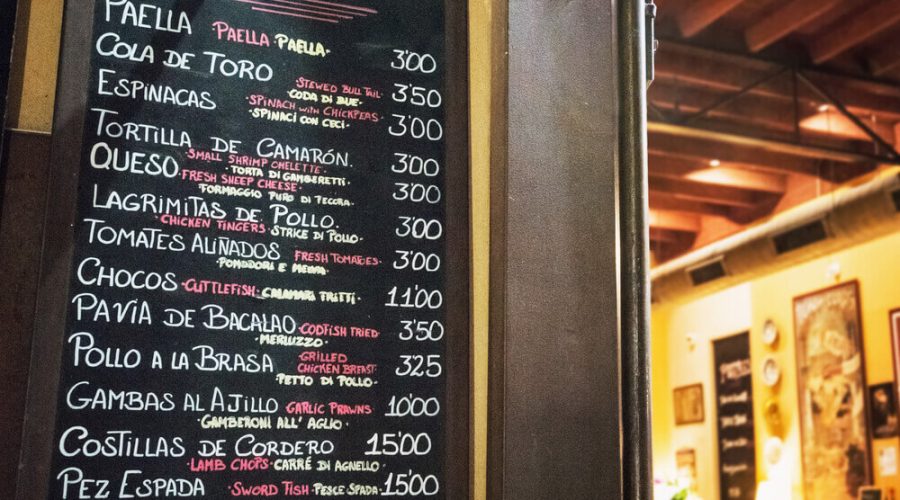 PAELLA ·PAELLA ·PAELLA· 3'00
COLA DE TORO ·STEWED BULL TAIL· 3'50
·CODA DI BUE·
ESPINACAS ·SPINACH WITH CHICKPEAS· 3'00
·SPINACI CON CECI·
TORTILLA DE CAMARÓN. 3'00
·SMALL SHRIMP OMELETTE·
·TORTA DI GAMBERETTI·
QUESO ·FRESH SHEEP CHEESE· 3'00
FORMAGGIO PURO DI PECORA·
LAGRIMITAS DE POLLO. 3'00
·CHICKEN FINGERS· STRICE DI POLLO·
TOMATES ALIÑADOS ·FRESH TOMATOES· 3'00
·POMODORI E
CHOCOS ·CUTTLEFISH· CALAMARI FRITTI· 11'00
PAVÍA DE BACALAO ·CODFISH FRIED· 3'50
·MERLUZZO·
POLLO A LA BRASA ·GRILLED CHICKEN BREAST· 3'25
·PETTO DI POLLO·
GAMBAS AL AJILLO GARLIC PRAWNS· 10'00
·GAMBERONI ALL' AGLIO·
COSTILLAS DE CORDERO 15'00
·LAMB CHOPS· CARRÉ DI AGNELLO·
PEZ ESPADA ·SWORD FISH· PESCE SPADA· 15'00